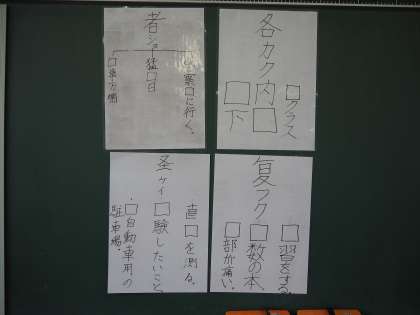 各カク
□クラス
内□
□下
者ショ
警察□に行く。
猛□日
复フク
□習をする。
□数の本
□部が痛い。
圣ケイ
直□を測る。
□験したいこと
□自動車用の
駐車場。